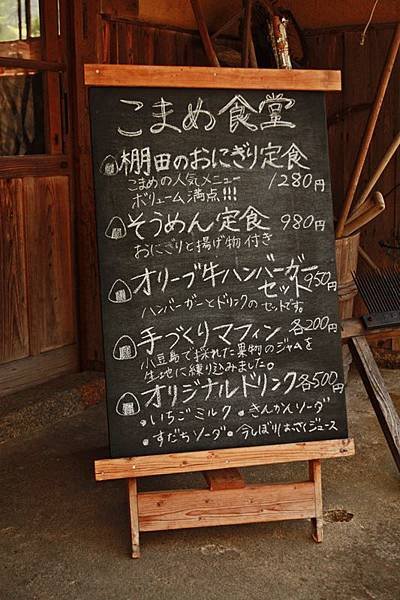 こまめ食堂
棚田のおにぎり定食
こまめの人気メニュー 1280円
ボリューム満点!!!
そうめん定食 980円
おにぎりと揚げ物付き
オリーブ牛ハンバーガー
セット 950円
ハンバーガーとドリンクのセットです。
手づくりマフィン 各200円
小豆島で採れた果物のジャムを
生地に練り込みました。
オリジナルドリンク 各500円
・いちごミルク ・きんかんソーダ
・すだちソーダ ・今しぼりおさくジュース